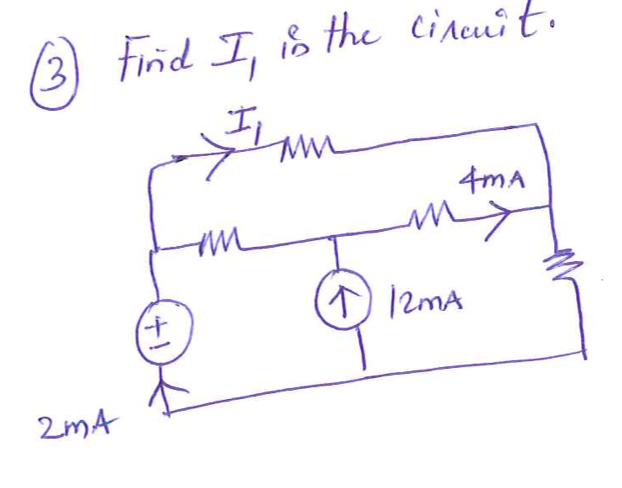 ③ Find I₁ is the circuit.
I₁
4mA
+
−
12mA
2mA